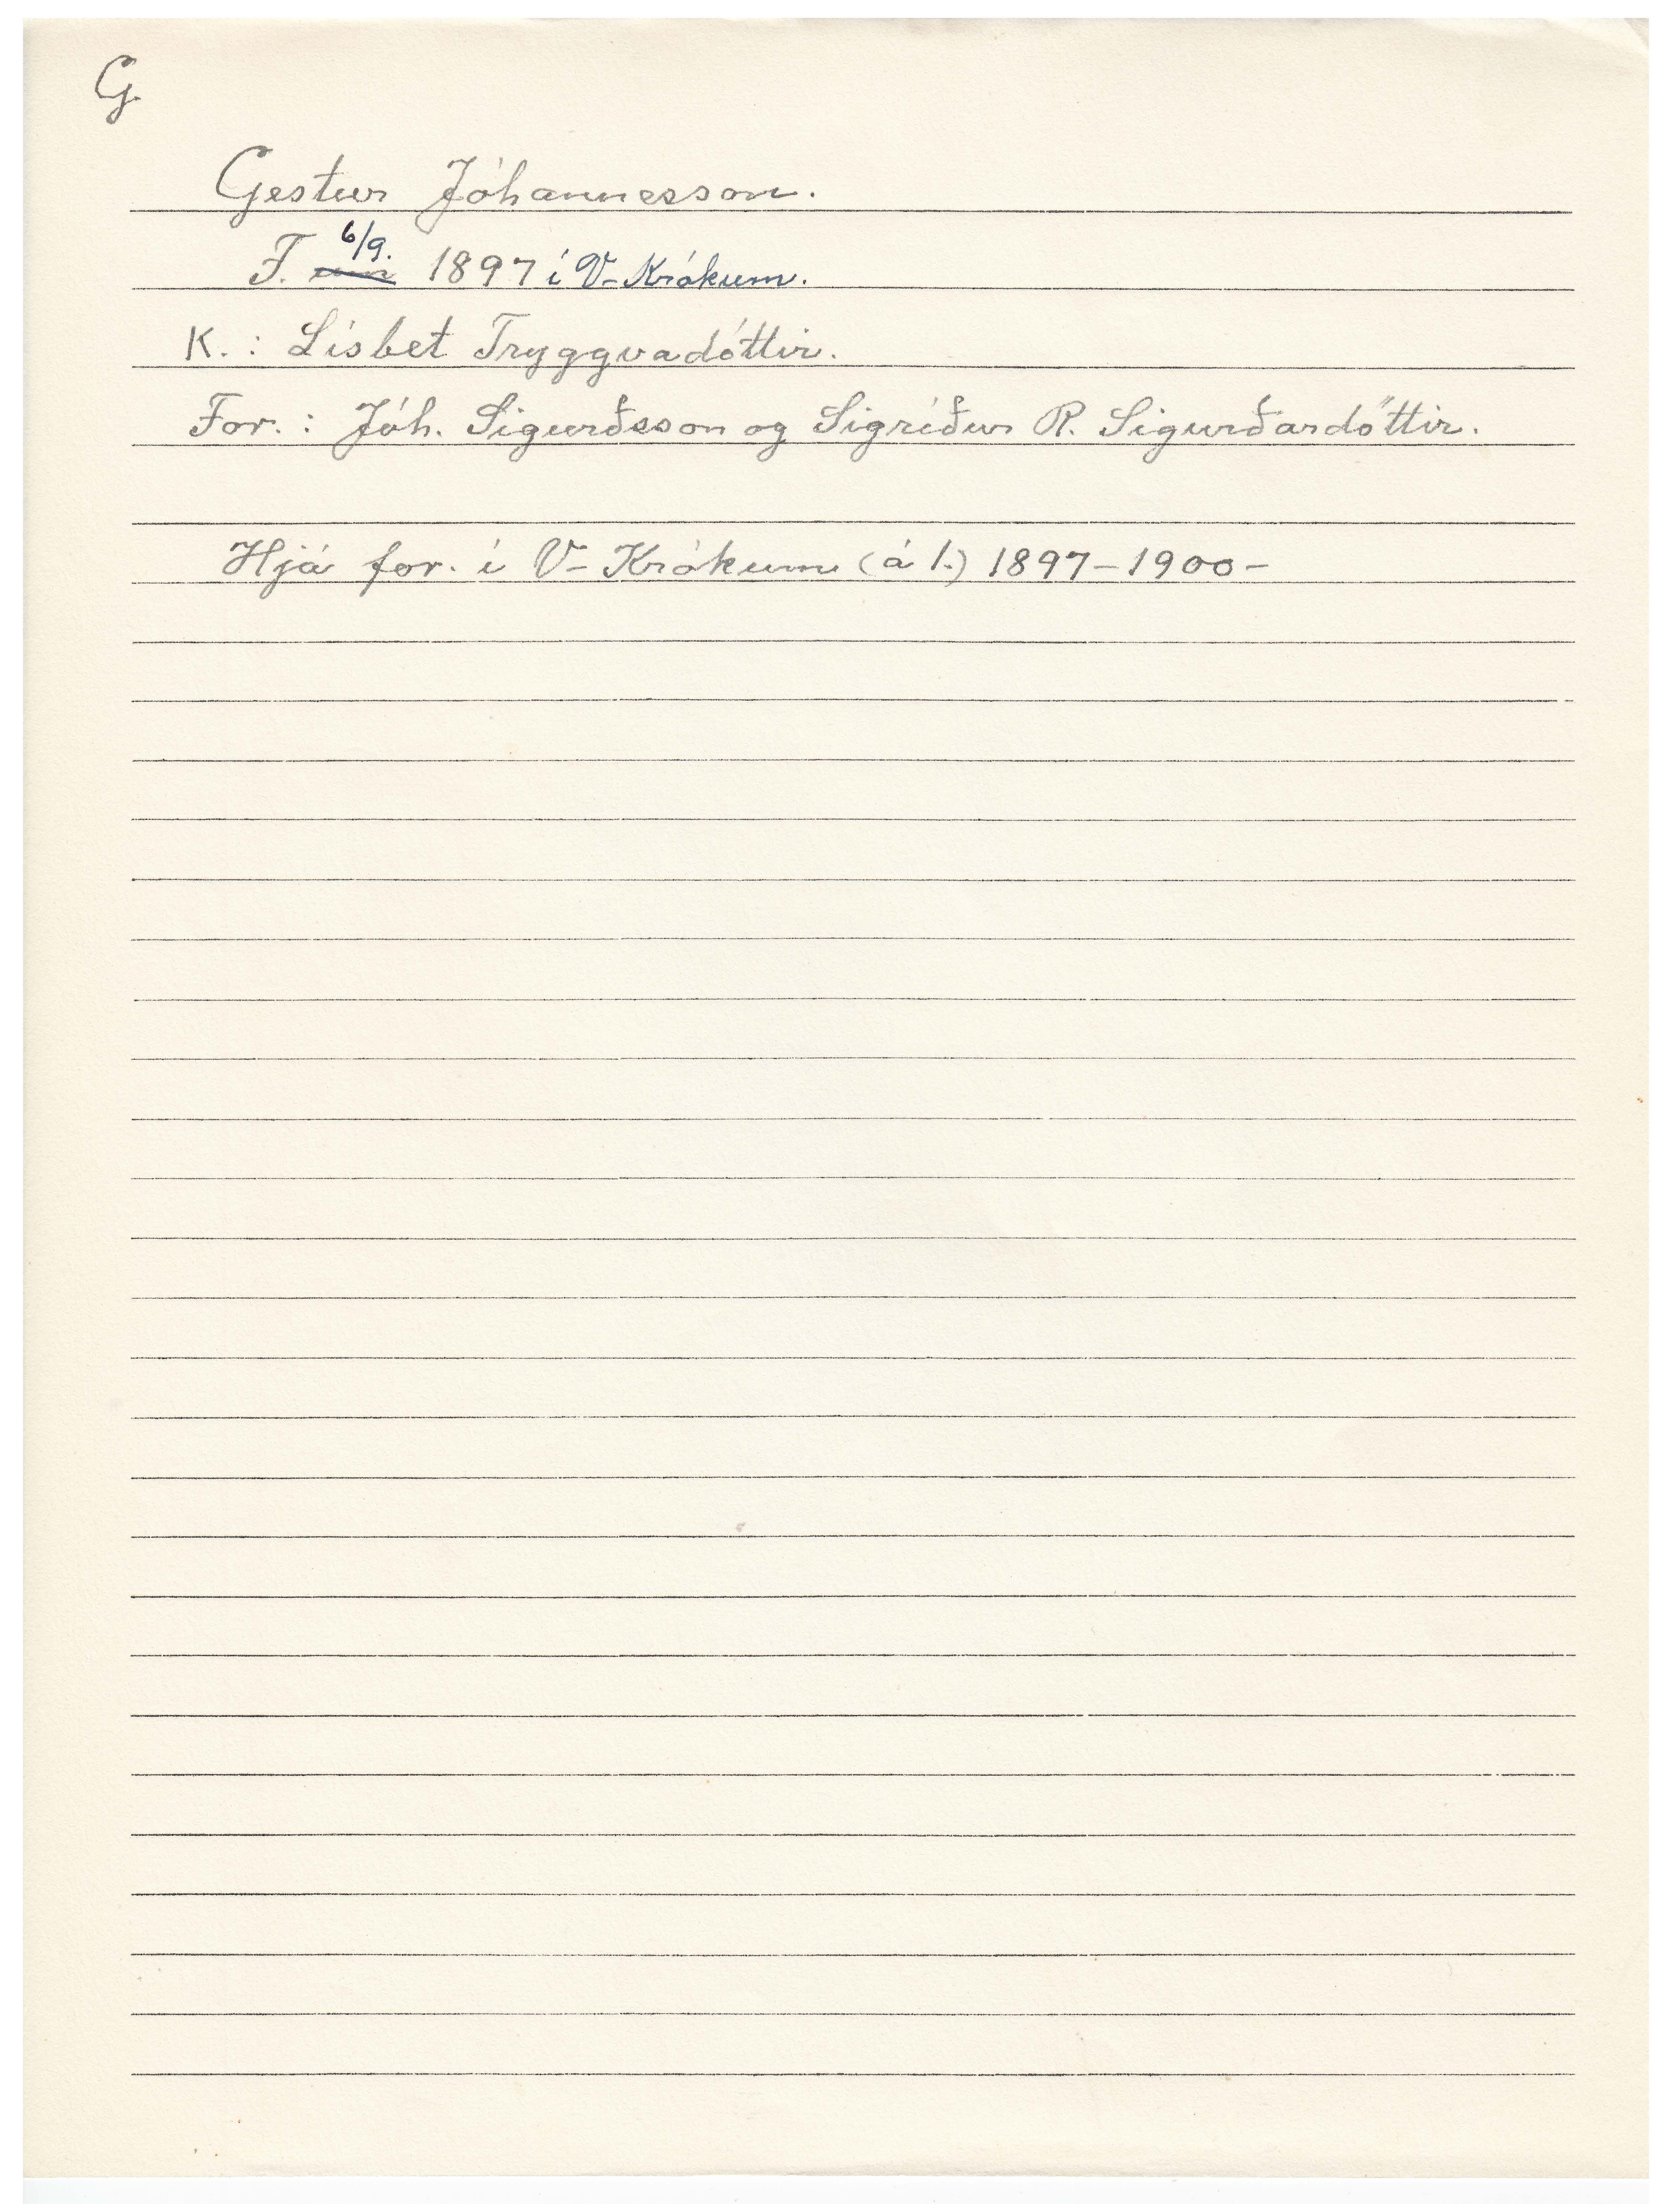 G.
Gestur Jóhannesson.
F. um 6/9. 1897 í V-Krókum.
K.: Lísbet Tryggvadóttir.
For.: Jóh. Sigurðsson og Sigríður R. Sigurðardóttir.
Hjá for. í V-Krókum (á 1.) 1897-1900-